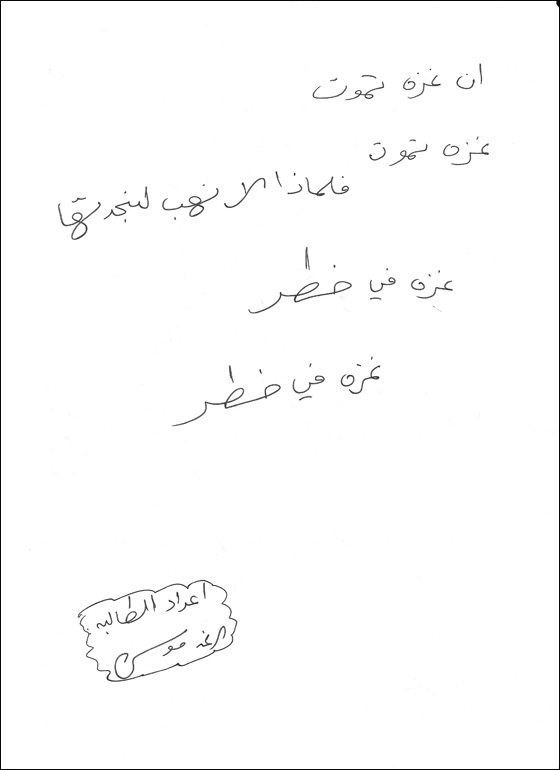 ان غزه تموت
غزه تموت
فلماذا لا نهب لنجدتها
غزه في خطر
غزه في خطر
اعداد الطالبه